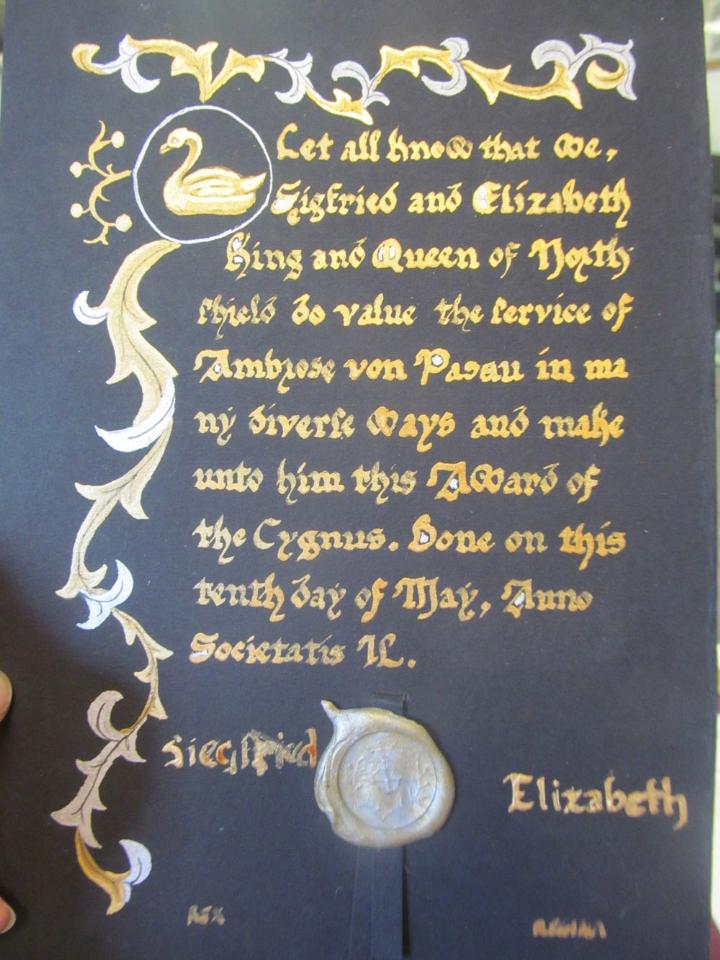 Let all know that we,
Sigfried and Elizabeth
King and Queen of North
shield do value the service of
Ambrose von Pasau in ma
ny diverse ways and make
unto him this Award of
the Cygnus. Done on this
tenth day of May, Anno
Societatis IL.
Siegfried
Elizabeth
REX